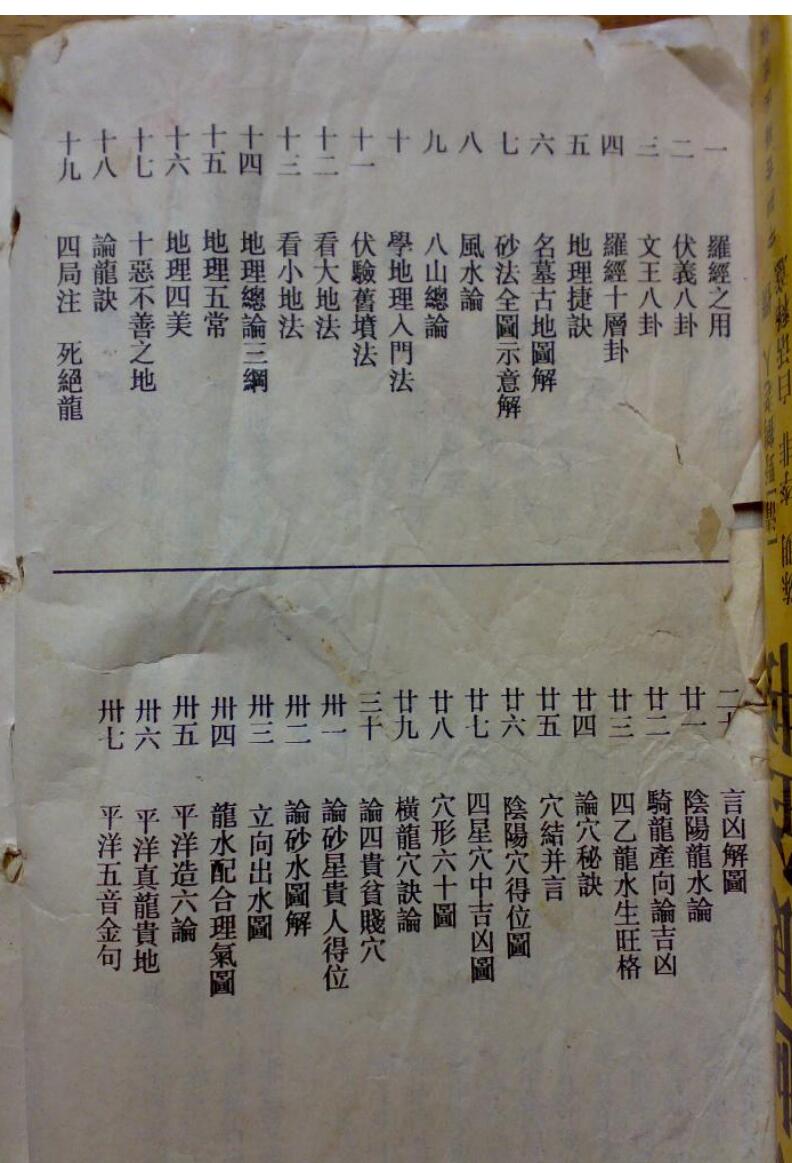 一 羅經之用
二 伏義八卦
三 文王八卦
四 羅經十層卦
五 地理捷訣
六 名墓古地圖解
七 砂法全圖示意解
八 風水論
九 八山總論
十 學地理入門法
十一 伏驗舊墳法
十二 看大地法
十三 看小地法
十四 地理總論三綱
十五 地理五常
十六 地理四美
十七 十惡不善之地
十八 論龍訣
十九 四局注 死絕龍
二十 言凶解圖
廿一 陰陽龍水論
廿二 騎龍產向論吉凶
廿三 四乙龍水生旺格
廿四 論穴秘訣
廿五 穴結并言
廿六 陰陽穴得位圖
廿七 四星穴中吉凶圖
廿八 穴形六十圖
廿九 橫龍穴訣論
三十 論四貴貧賤穴
卅一 論砂星貴人得位
卅二 論砂水圖解
卅三 立向出水圖
卅四 龍水配合理氣圖
卅五 平洋造六論
卅六 平洋真龍貴地
卅七 平洋五音金句